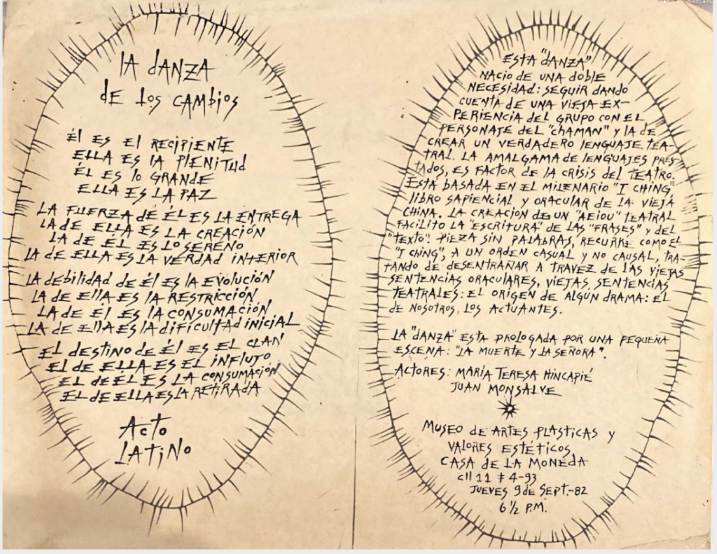 LA DANZA
DE LOS CAMBIOS
ÉL ES EL RECIPIENTE
ELLA ES LA PLENITUD
ÉL ES LO GRANDE
ELLA ES LA PAZ
LA FUERZA DE ÉL ES LA ENTREGA
LA DE ELLA ES LA CREACIÓN
LA DE ÉL ES LO SERENO
LA DE ELLA ES LA VERDAD INTERIOR
LA DEBILIDAD DE ÉL ES LA EVOLUCIÓN
LA DE ELLA ES LA RESTRICCIÓN
LA DE ÉL ES LA CONSUMACIÓN
LA DE ELLA ES LA DIFICULTAD INICIAL
EL DESTINO DE ÉL ES EL CLAN
EL DE ELLA ES EL INFLUJO
EL DE ÉL ES LA CONSUMACIÓN
EL DE ELLA ES LA RETIRADA
ACTO
LATINO
ESTA "DANZA"
NACIO DE UNA DOBLE
NECESIDAD: SEGUIR DANDO
CUENTA DE UNA VIEJA EX-
PERIENCIA DEL GRUPO CON EL
PERSONAJE DEL "CHAMAN" Y LA DE
CREAR UN VERDADERO LENGUAJE TEA-
TRAL. LA AMALGAMA DE LENGUAJES PRES-
TADOS, ES FACTOR DE LA CRISIS DEL TEATRO.
ESTA BASADA EN EL MILENARIO "I CHING",
LIBRO SAPIENCIAL Y ORACULAR DE LA VIEJA
CHINA. LA CREACION DE UN "AEIOU" TEATRAL
FACILITO LA "ESCRITURA" DE LAS "FRASES" Y DEL
"TEXTO". PIEZA SIN PALABRAS, RECURRE COMO EL
"I CHING", A UN ORDEN CASUAL Y NO CAUSAL, TRA-
TANDO DE DESENTRAÑAR A TRAVEZ DE LAS VIEJAS
SENTENCIAS ORACULARES, VIEJAS SENTENCIAS
TEATRALES: EL ORIGEN DE ALGÚN DRAMA: EL
DE NOSOTROS, LOS ACTUANTES.
LA "DANZA" ESTA PROLOGADA POR UNA PEQUEÑA
ESCENA: "LA MUERTE Y LA SEÑORA".
ACTORES: MARIA TERESA HINCAPIÉ
JUAN MONSALVE
MUSEO DE ARTES PLASTICAS Y
VALORES ESTÉTICOS
CASA DE LA MONEDA
Cll 11 # 4-93
JUEVES 9 de SEPT.-82
6 ½ P.M.